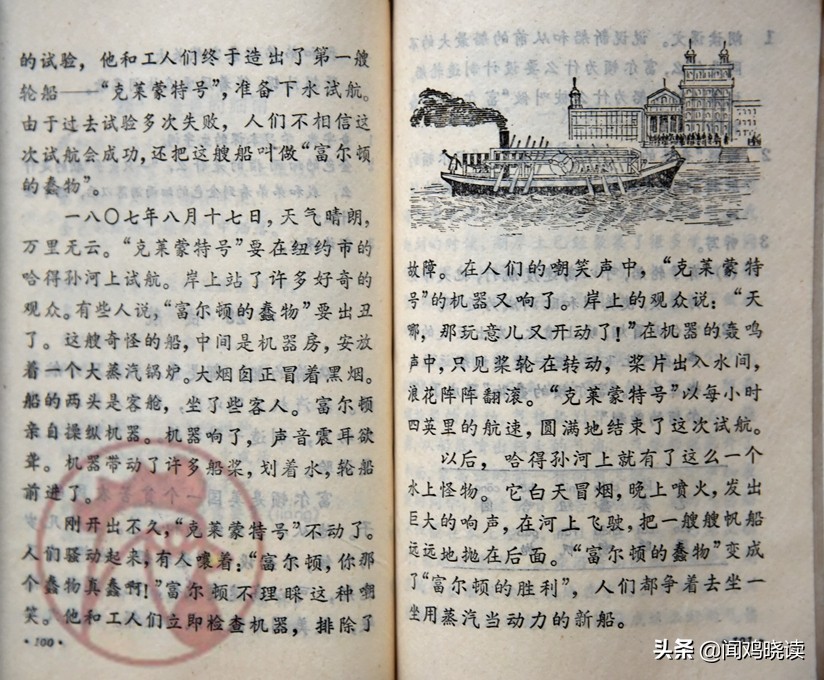 的试验，他和工人们终于造出了第一艘
轮船——“克莱蒙特号”，准备下水试航。
由于过去试验多次失败，人们不相信这
次试航会成功，还把这艘船叫做“富尔顿
的蠢物”。
一八〇七年八月十七日，天气晴朗，
万里无云。“克莱蒙特号”要在纽约市的
哈得孙河上试航。岸上站了许多好奇的
观众。有些人说，“富尔顿的蠢物”要出丑
了。这艘奇怪的船，中间是机器房，安放
着一个大蒸汽锅炉。大烟囱正冒着黑烟。
船的两头是客舱，坐了些客人。富尔顿
亲自操纵机器。机器响了，声音震耳欲
聋。机器带动了许多船桨，划着水，轮船
前进了。
刚开出不久，“克莱蒙特号”不动了。
人们骚动起来，有人嚷着：“富尔顿，你那
个蠢物真蠢啊！”富尔顿不理睬这种嘲
笑。他和工人们立即检查机器，排除了
·100·
故障。在人们的嘲笑声中，“克莱蒙特
号”的机器又响了。岸上的观众说：“天
哪，那玩意儿又开动了！”在机器的轰鸣
声中，只见桨轮在转动，桨片出入水间，
浪花阵阵翻滚。“克莱蒙特号”以每小时
四英里的航速，圆满地结束了这次试航。
以后，哈得孙河上就有了这么一个
水上怪物。它白天冒烟，晚上喷火，发出
巨大的响声，在河上飞驶，把一艘艘帆船
远远地抛在后面。“富尔顿的蠢物”变成
了“富尔顿的胜利”，人们都争着去坐一
坐用蒸汽当动力的新船。
头条 @闻鸡晓读